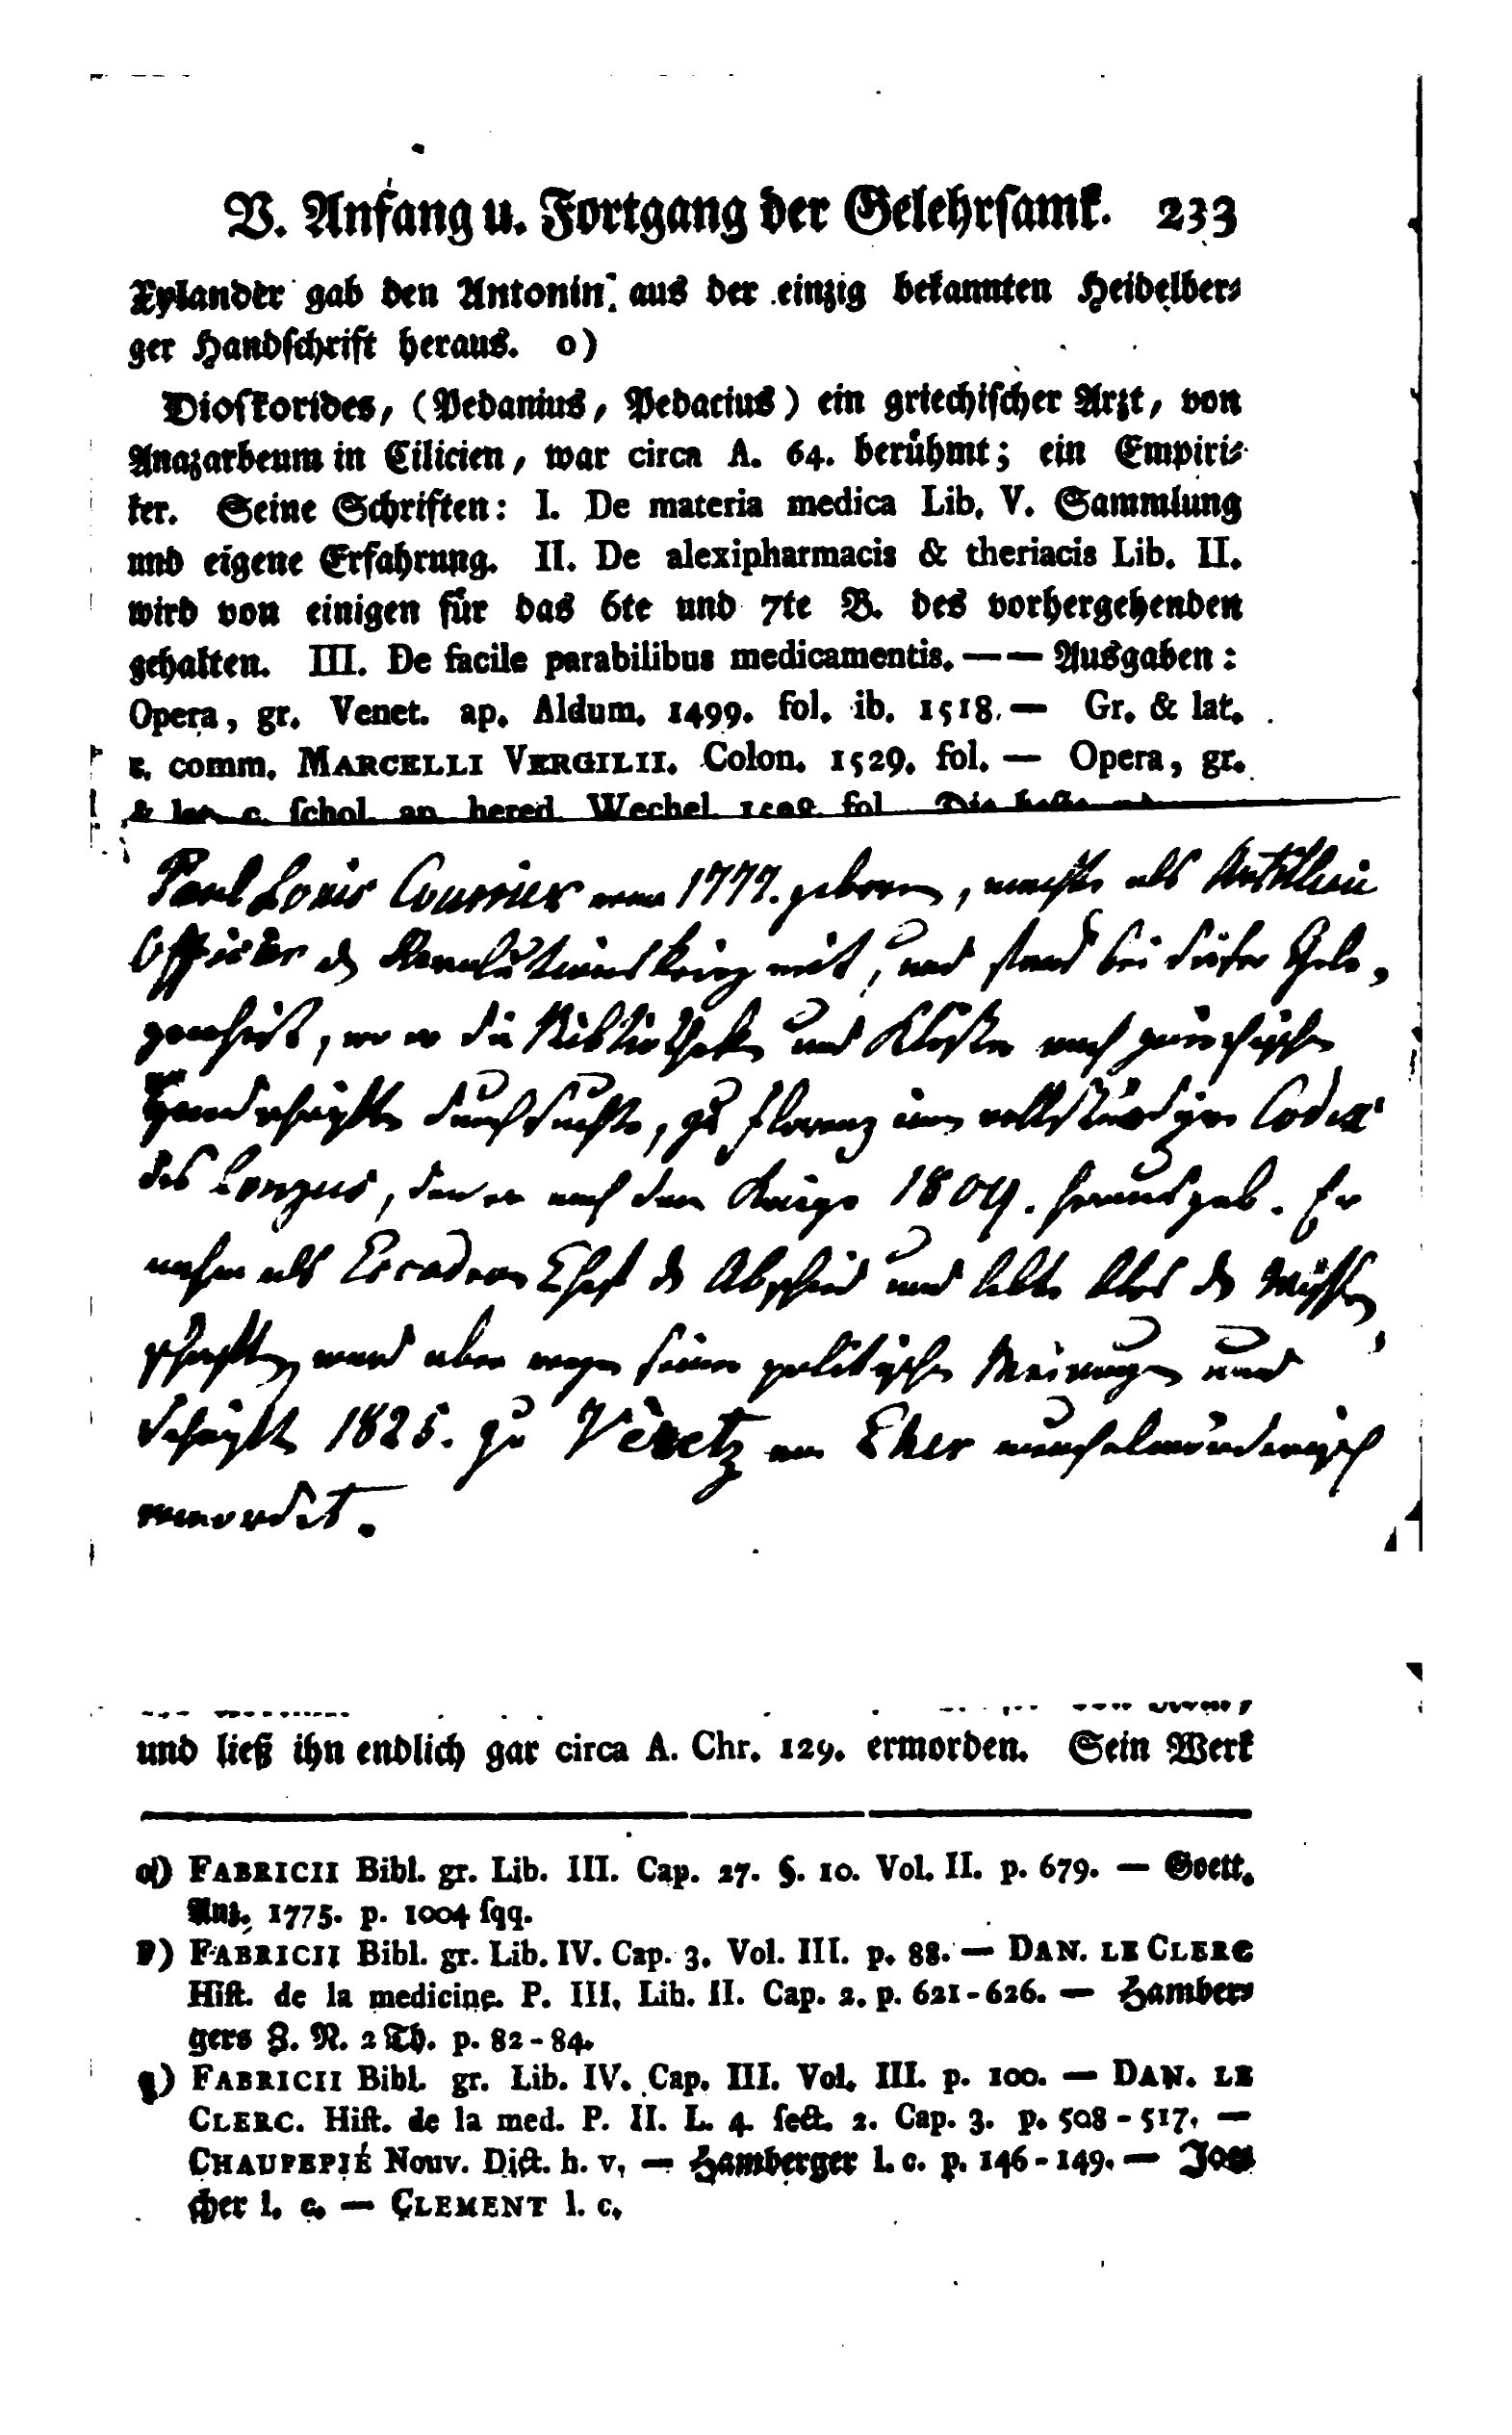 V. Anfang u. Fortgang der Gelehrsamk. 233
Xylander gab den Antonin aus der einzig bekannten Heidelber-
ger Handschrift heraus. o)
Dioskorides, (Pedanius, Pedacius) ein griechischer Arzt, von
Anazarbeum in Cilicien, war circa A. 64. berühmt; ein Empiri-
ker. Seine Schriften: I. De materia medica Lib. V. Sammlung
und eigene Erfahrung. II. De alexipharmacis & theriacis Lib. II.
wird von einigen für das 6te und 7te B. des vorhergehenden
gehalten. III. De facile parabilibus medicamentis. — — Ausgaben:
Opera, gr. Venet. ap. Aldum. 1499. fol. ib. 1518. — Gr. & lat.
c. comm. MARCELLI VERGILII. Colon. 1529. fol. — Opera, gr.
& lat. c. ſchol. ap. hered. Wechel. 1598. fol. Die beste
Paul Louis Courrier war 1777. geboren, machte als Artillerie
Officier d Revolutionskrieg mit, und fand bei dieser Gele-
genheit, wo er die Bibliotheken und Klöster nach griechischen
Handschriften durchsuchte, zu Florenz einen vollständigen Codex
des Longus, den er nach dem Kriege 1809. herausgab. Er
nahm als Escadron Chef d Abschied und lebte blos d Wissen
schaften, ward aber wegen seiner politischen Meinungen und
Schriften 1825. zu Véretz am Cher meuchelmörderisch
ermordet.
und ließ ihn endlich gar circa A. Chr. 129. ermorden. Sein Werk
o) FABRICII Bibl. gr. Lib. III. Cap. 27. §. 10. Vol. II. p. 679. — Goett.
Anz. 1775. p. 1004 ſqq.
p) FABRICII Bibl. gr. Lib. IV. Cap. 3. Vol. III. p. 88. — DAN. LE CLERC
Hiſt. de la medicine. P. III. Lib. II. Cap. 2. p. 621-626. — Hamber-
gers Z. N. 2 Th. p. 82-84.
q) FABRICII Bibl. gr. Lib. IV. Cap. III. Vol. III. p. 100. — DAN. LE
CLERC. Hiſt. de la med. P. II. L. 4. ſect. 2. Cap. 3. p. 508-517. —
CHAUFEPIÉ Nouv. Dict. h. v. — Hamberger l. c. p. 146-149. — Joe-
cher l. c. — CLEMENT l. c.